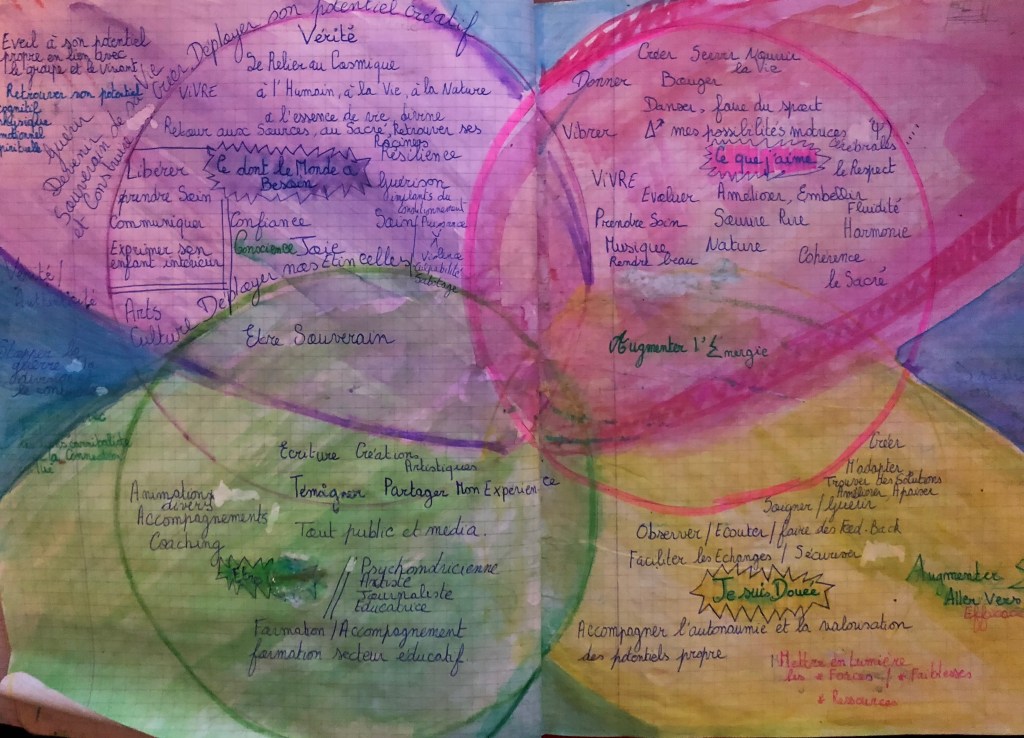 Eveil à son potentiel
propre en lien avec
le groupe et le vivant
Retrouver son potentiel
cognitif
physique
émotionnel
spirituelle
Guérir
Devenir
Souverain de sa vie
et Construire
Créer Déployer son potentiel créatif
Vérité
Se Relier au Cosmique
ViVRE à l'Humain, à la Vie, à la Nature
à l'essence de vie, divine
Retour aux Sources, au Sacré, Retrouver ses
Racines
Résilience
Libérer
prendre Soin
Communiquer
Exprimer son
enfant intérieur
Ce dont le Monde a
Besoin
Guérison
Confiance
Conscience Joie
Soin
Violence
Culpabilité
Sabotage
Déployer nos Etincelles
Arts
Culture
Etre Souverain
Créer Servir Nourrir
la Vie
Donner Bouger
Danser, faire du sport
Vibrer mes possibilités motrices
Cérébrales
Ce que j'aime
le Respect
ViVRE
Evoluer Améliorer, Embellir
Fluidité
Harmonie
Prendre Soin Sourire Rire
Musique Nature
Rendre beau
Cohérence
le Sacré
Augmenter l'Énergie
Ecriture Créations
Artistiques
Témoigner Partager Mon Expérience
Animations
divers
Accompagnements
Coaching
Tout public et media.
Psychomotricienne
Artiste
Journaliste
Educatrice
Formation/Accompagnement
formation secteur educatif
Créer
M'adapter
Trouver des Solutions
Améliorer Apaiser
Soigner/Guérir
Observer/Ecouter/faire des Feed-Back
Faciliter les Echanges / Sécuriser
Je suis Douée
Augmenter
Aller Vers
Accompagner l'autonomie et la valorisation
des potentiels propre
Mettre en Lumière
les + Forces / + Faiblesses
+ Ressources